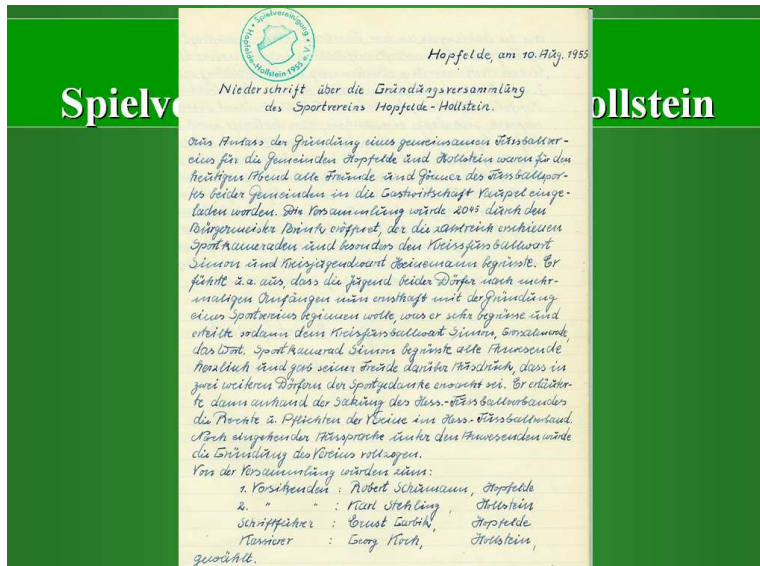 Spielvereinigung Hopfelde-Hollstein 1955 e.V.
Hopfelde, am 10. Aug. 1955
Niederschrift über die Gründungsversammlung
des Sportvereins Hopfelde-Hollstein.
Spielv
ollstein
Aus Anlass der Gründung eines gemeinsamen Fussballver-
eins für die Gemeinden Hopfelde und Hollstein waren für den
heutigen Abend alle Freunde und Gönner des Fussballspor-
tes beider Gemeinden in die Gastwirtschaft Vaupel einge-
laden worden. Die Versammlung wurde 2045 durch den
Bürgermeister Brink eröffnet, der die zahlreich erschienen
Sportkameraden und besonders den Kreisfussballwart
Simon und Kreisjugendwart Heinemann begrüsste. Er
führte u.a. aus, dass die Jugend beider Dörfer nach mehr-
maligen Anfängen nun ernsthaft mit der Gründung
eines Sportvereins beginnen wolle, was er sehr begrüsse und
erteilte sodann dem Kreisfussballwart Simon, Grossalmerode,
das Wort. Sportkamerad Simon begrüsste alle Anwesende
herzlich und gab seiner Freude darüber Ausdruck, dass in
zwei weiteren Dörfern der Sportgedanke erwacht sei. Er erläuter-
te dann anhand der Satzung des Hess.-Fussballverbandes
die Rechte u. Pflichten der Vereine im Hess.-Fussballverband.
Nach eingehender Aussprache unter den Anwesenden wurde
die Gründung des Vereins vollzogen.
Von der Versammlung wurden zum:
1. Vorsitzenden : Robert Schümann, Hopfelde
2. " " : Karl Stehling, Hollstein
Schriftführer : Ernst Garbik, Hopfelde
Kassierer : Georg Koch, Hollstein,
gewählt.